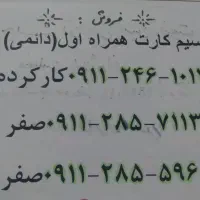 فروش :
سیم کارت همراه اول(دائمی)
۰۹۱۱-۲۴۶-۱۰۱ کارکرده
۰۹۱۱-۲۸۵-۷۱۱۳ صفر
۰۹۱۱-۲۸۵-۵۹۶ صفر